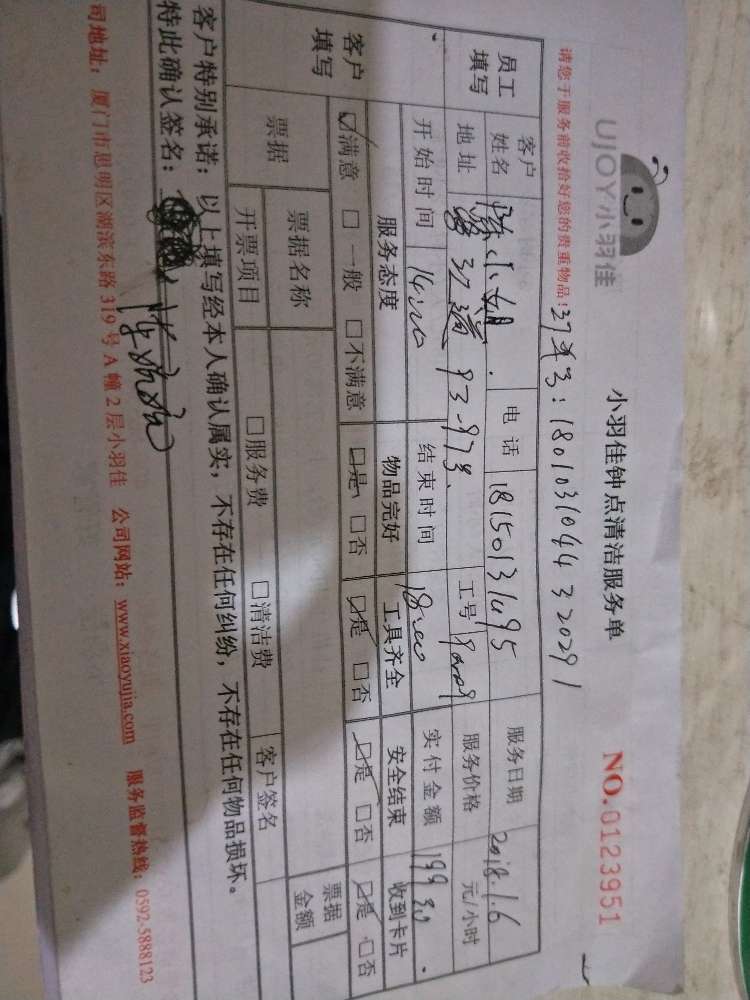 UJOY小羽佳
小羽佳钟点清洁服务单
NO.0123951
请您于服务前收拾好您的贵重物品!
: 180103104432029
员工填写
客户姓名 陈小姐 电话 18150131495 服务日期 2018.1.6
地址 93-97号 工号 服务价格 元/小时
客户填写
开始时间 14:00 结束时间 18:00 实付金额
服务态度 物品完好 工具齐全 安全结束 收到卡片
☑满意 □一般 □不满意 ☑是 □否 ☑是 □否 ☑是 □否 ☑是 □否
票据 票据名称 票据金额
开票项目 □服务费 □清洁费 客户签名
客户特别承诺:以上填写经本人确认属实,不存在任何纠纷,不存在任何物品损坏。
特此确认签名:
司地址:厦门市思明区湖滨东路319号A幢2层小羽佳 公司网站:www.xiaoyujia.com 服务监督热线:0592-5888123